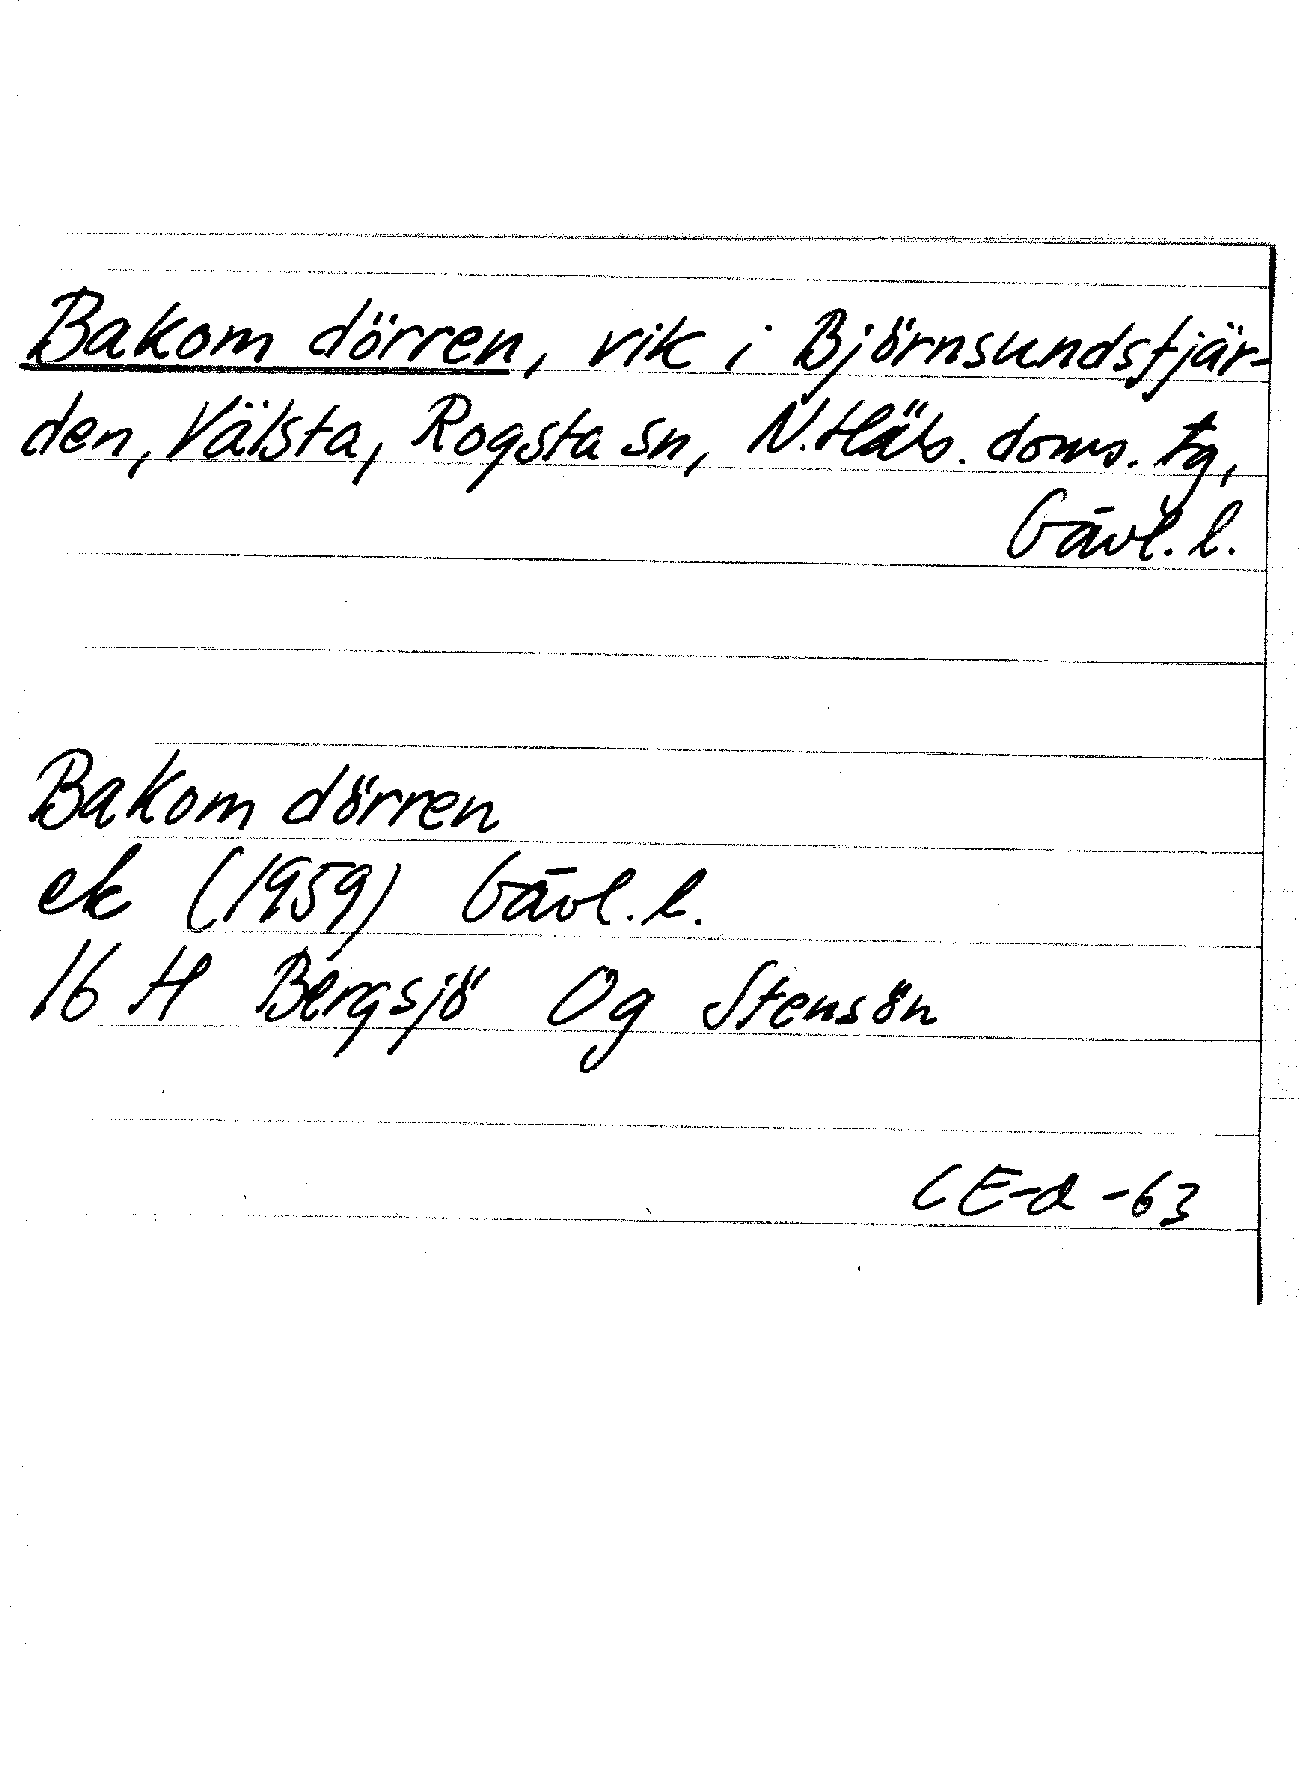 Bakom dörren, vik i Björnsundsfjär-
den, Välsta, Rogsta sn, N. Häls. doms. tg,
Gävl. l.
Bakom dörren
ek (1959) Gävl. l.
16 H Bergsjö Og Stensön
CE-d -63